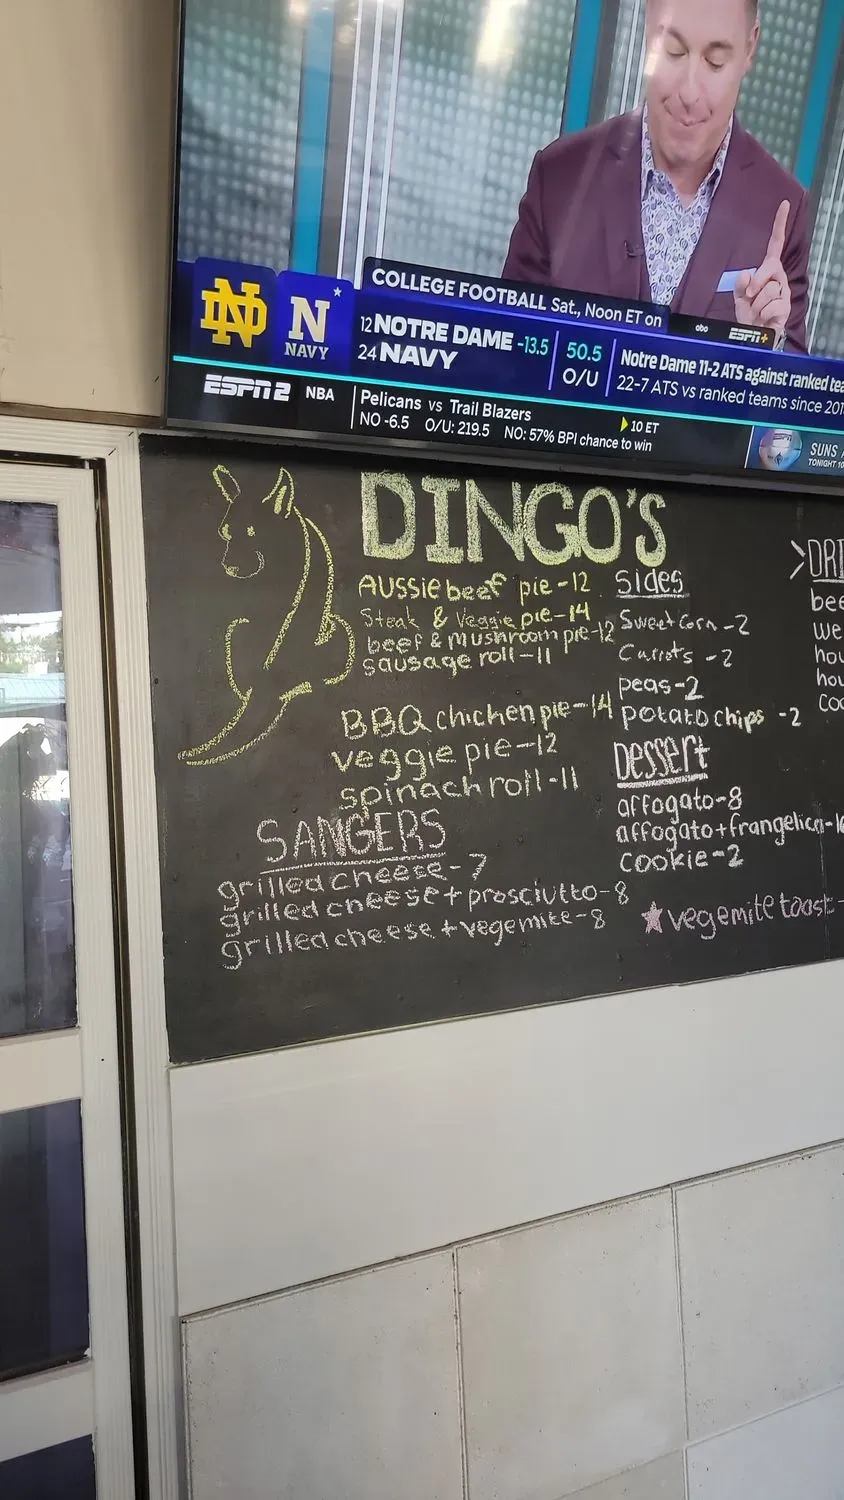 COLLEGE FOOTBALL Sat., Noon ET on abc ESPN+
12 NOTRE DAME -13.5
24 NAVY
50.5
O/U
Notre Dame 11-2 ATS against ranked
22-7 ATS vs ranked teams since
ND
N
NAVY
ESPN2 NBA
Pelicans vs Trail Blazers
NO -6.5 O/U: 219.5 NO: 57% BPI chance to win
10 ET
SUNS
TONIGHT
DINGO'S
AUSSIE beef pie-12
Steak & Veggie pie-14
beef & mushroom pie-12
sausage roll-11
BBQ chicken pie-14
veggie pie-12
spinach roll-11
SANGERS
grilled cheese-7
grilled cheese + prosciutto-8
grilled cheese + vegemite-8
Sides
Sweet Corn-2
Carrots-2
peas-2
potato chips-2
Dessert
affogato-8
affogato+frangelico-
cookie-2
★vegemite toast-